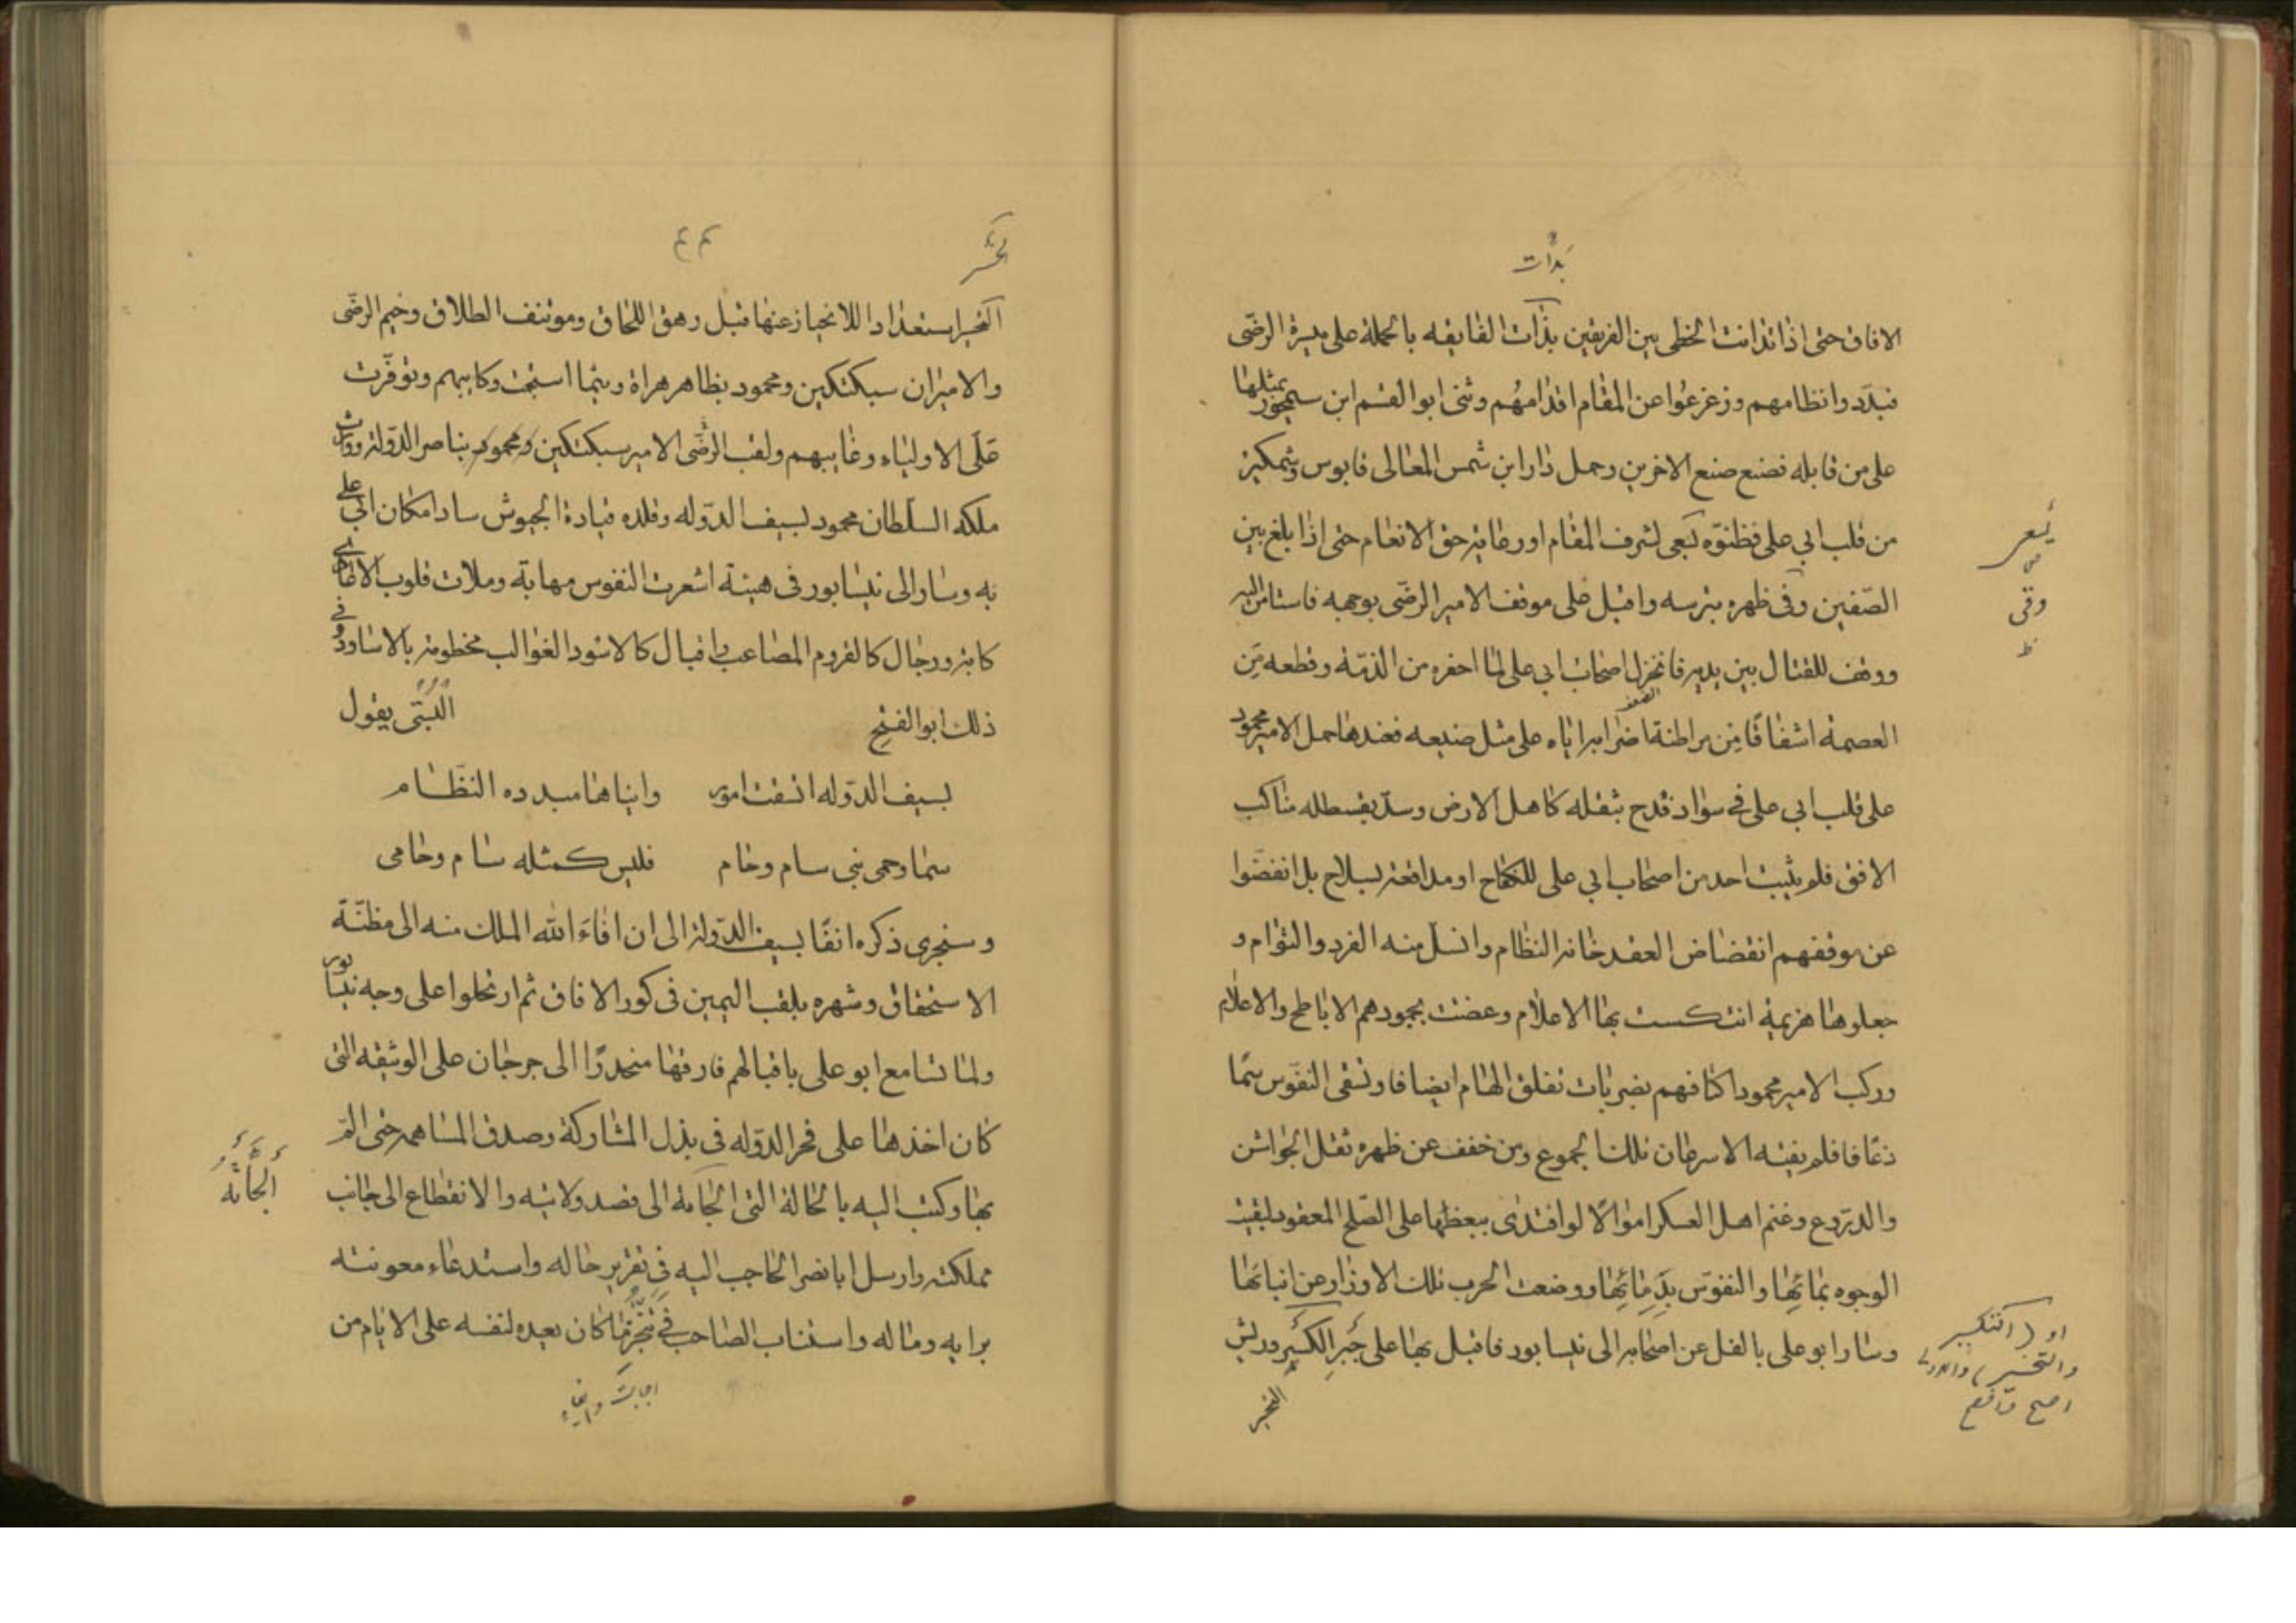 بدأت
الافاق حتى اذا تدانت الخطى بين الفريقين بذات الفايقه بالحملة على ميسرة الرضّى
فبدّدوا نظامهم وزعزعوا عن المقام اقدامهم وثنى ابو القسم ابن سيمجور بمثلها
على من قابله فصنع صنع الاخرين وحمل دارا ابن شمس المعالى قابوس وشمكير
من قلب ابي على فظنوّه يسعى لشرف المقام او رعاية حق الانعام حتى اذا بلغ بين
الصّفين وفى ظهره بترسه واقبل على موقف الامير الرضّى بوجهه فاستامن اليه
ووقف للقتال بين يديه فانخزل اصحاب ابي على لما احفره من الذمّة وقطعه من
العصمة اشفاقا من مراطنة اضرابه اياه على مثل صنيعه فعندها حمل الامير محمود
على قلب ابي على في سواد فدح بثقله كاهل الارض وسدّ بقسطله مناكب
الافق فلم يثبت احد من اصحاب ابي على للكفاح او مدافعة بسلاح بل انفضّوا
عن موقفهم انفضاض العقد خانه النظام وانسلّ منه الفرد والتوام و
جعلوها هزيمة انتكست بها الاعلام وغصت بجمودهم الاباطح والاعلام
وركب الامير محمود اكتافهم بضربات تفلق الهام ايضافا وتسقى النفوس سمّا
ذعافا فلم يفته الا سرعان تلك الجموع ومن خفف عن ظهره ثقل الجواشن
والدروع وغنم اهل العسكر اموالا لو افتدى ببعظها على الصّلح المعقود لبقيت
الوجوه بمائها والنفوس بدمائها ووضعت الحرب تلك الاوزار عن انبائها
وسار ابو على بالفل عن اصحابه الى نيسابور فاقبل بها على جبر الكسير وريش
يسعى
وقى
ظ
او (التكسير
والتخسير)
اصح واقع
التخبر
تحسّر
٤٣
التخبر استعدادا للانحياز عنها قبل رهق اللحاق وموتنف الطلاق وخيم الرضّى
والاميران سبكتكين ومحمود بظاهر هراة ريثما استجمت ركابهم وتوفّرت
على الاولياء رغايبهم ولقب الرضّى الامير سبكتكين ومحمود بناصر الدّولة ووارث
ملكه السلطان محمود بسيف الدّوله وقلده قيادة الجيوش سادا مكان ابى على
به وسار الى نيسابور فى هيئة اشعرت النفوس مهابة وملات قلوب الاعادى
كابة ورجال كالقروم المصاعب واقبال كالاسود الغوالب مخطومة بالاساود وفى
ذلك ابو الفتح البستى يقول
بسيف الدّوله اتسقت امور وايناها مبدده النظام
سما وحمى بنى سام وحام فليس كمثله سام وحامى
وسنجرى ذكره انفا بسيف الدّولة الى ان افاء الله الملك منه الى مظنّة
الاستحقاق وشهره بلقب اليمين فى كور الافاق ثم ارتحلوا على وجه نيسابور
ولما تسامع ابو على باقبالهم فارقها منحدرا الى جرجان على الوثيقة التى
كان اخذها على فخر الدّوله فى بذل المشاركة وصدق المساهمة حتى المّ
بها وكتب اليه بالحالة التى الجأته الى قصد ولايته والانقطاع الى جانب
مملكته وارسل ابا نصر الحاجب اليه فى تقرير حاله واستدعاء معونته
برايه وماله واستناب الصاحب فى تنجّز ما كان يعيده لنفسه على الايام من
ألجأته